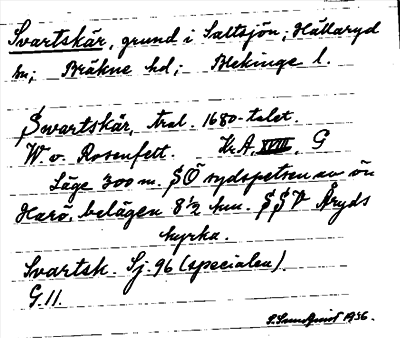 Svartskär, grund i Saltsjön; Hällaryd
sn; Bräkne hd; Blekinge l.
Swartskär, tral. 1680-talet.
W. v. Rosenfelt. Kr.A. XVIII, G
Läge 300 m. SÖ sydspetsen av ön
Harö, belägen 8½ km. SSV Åryds
kyrka.
Svartsk. Sj. 96 (specialen).
G.11.
S. Sundquist 1936.